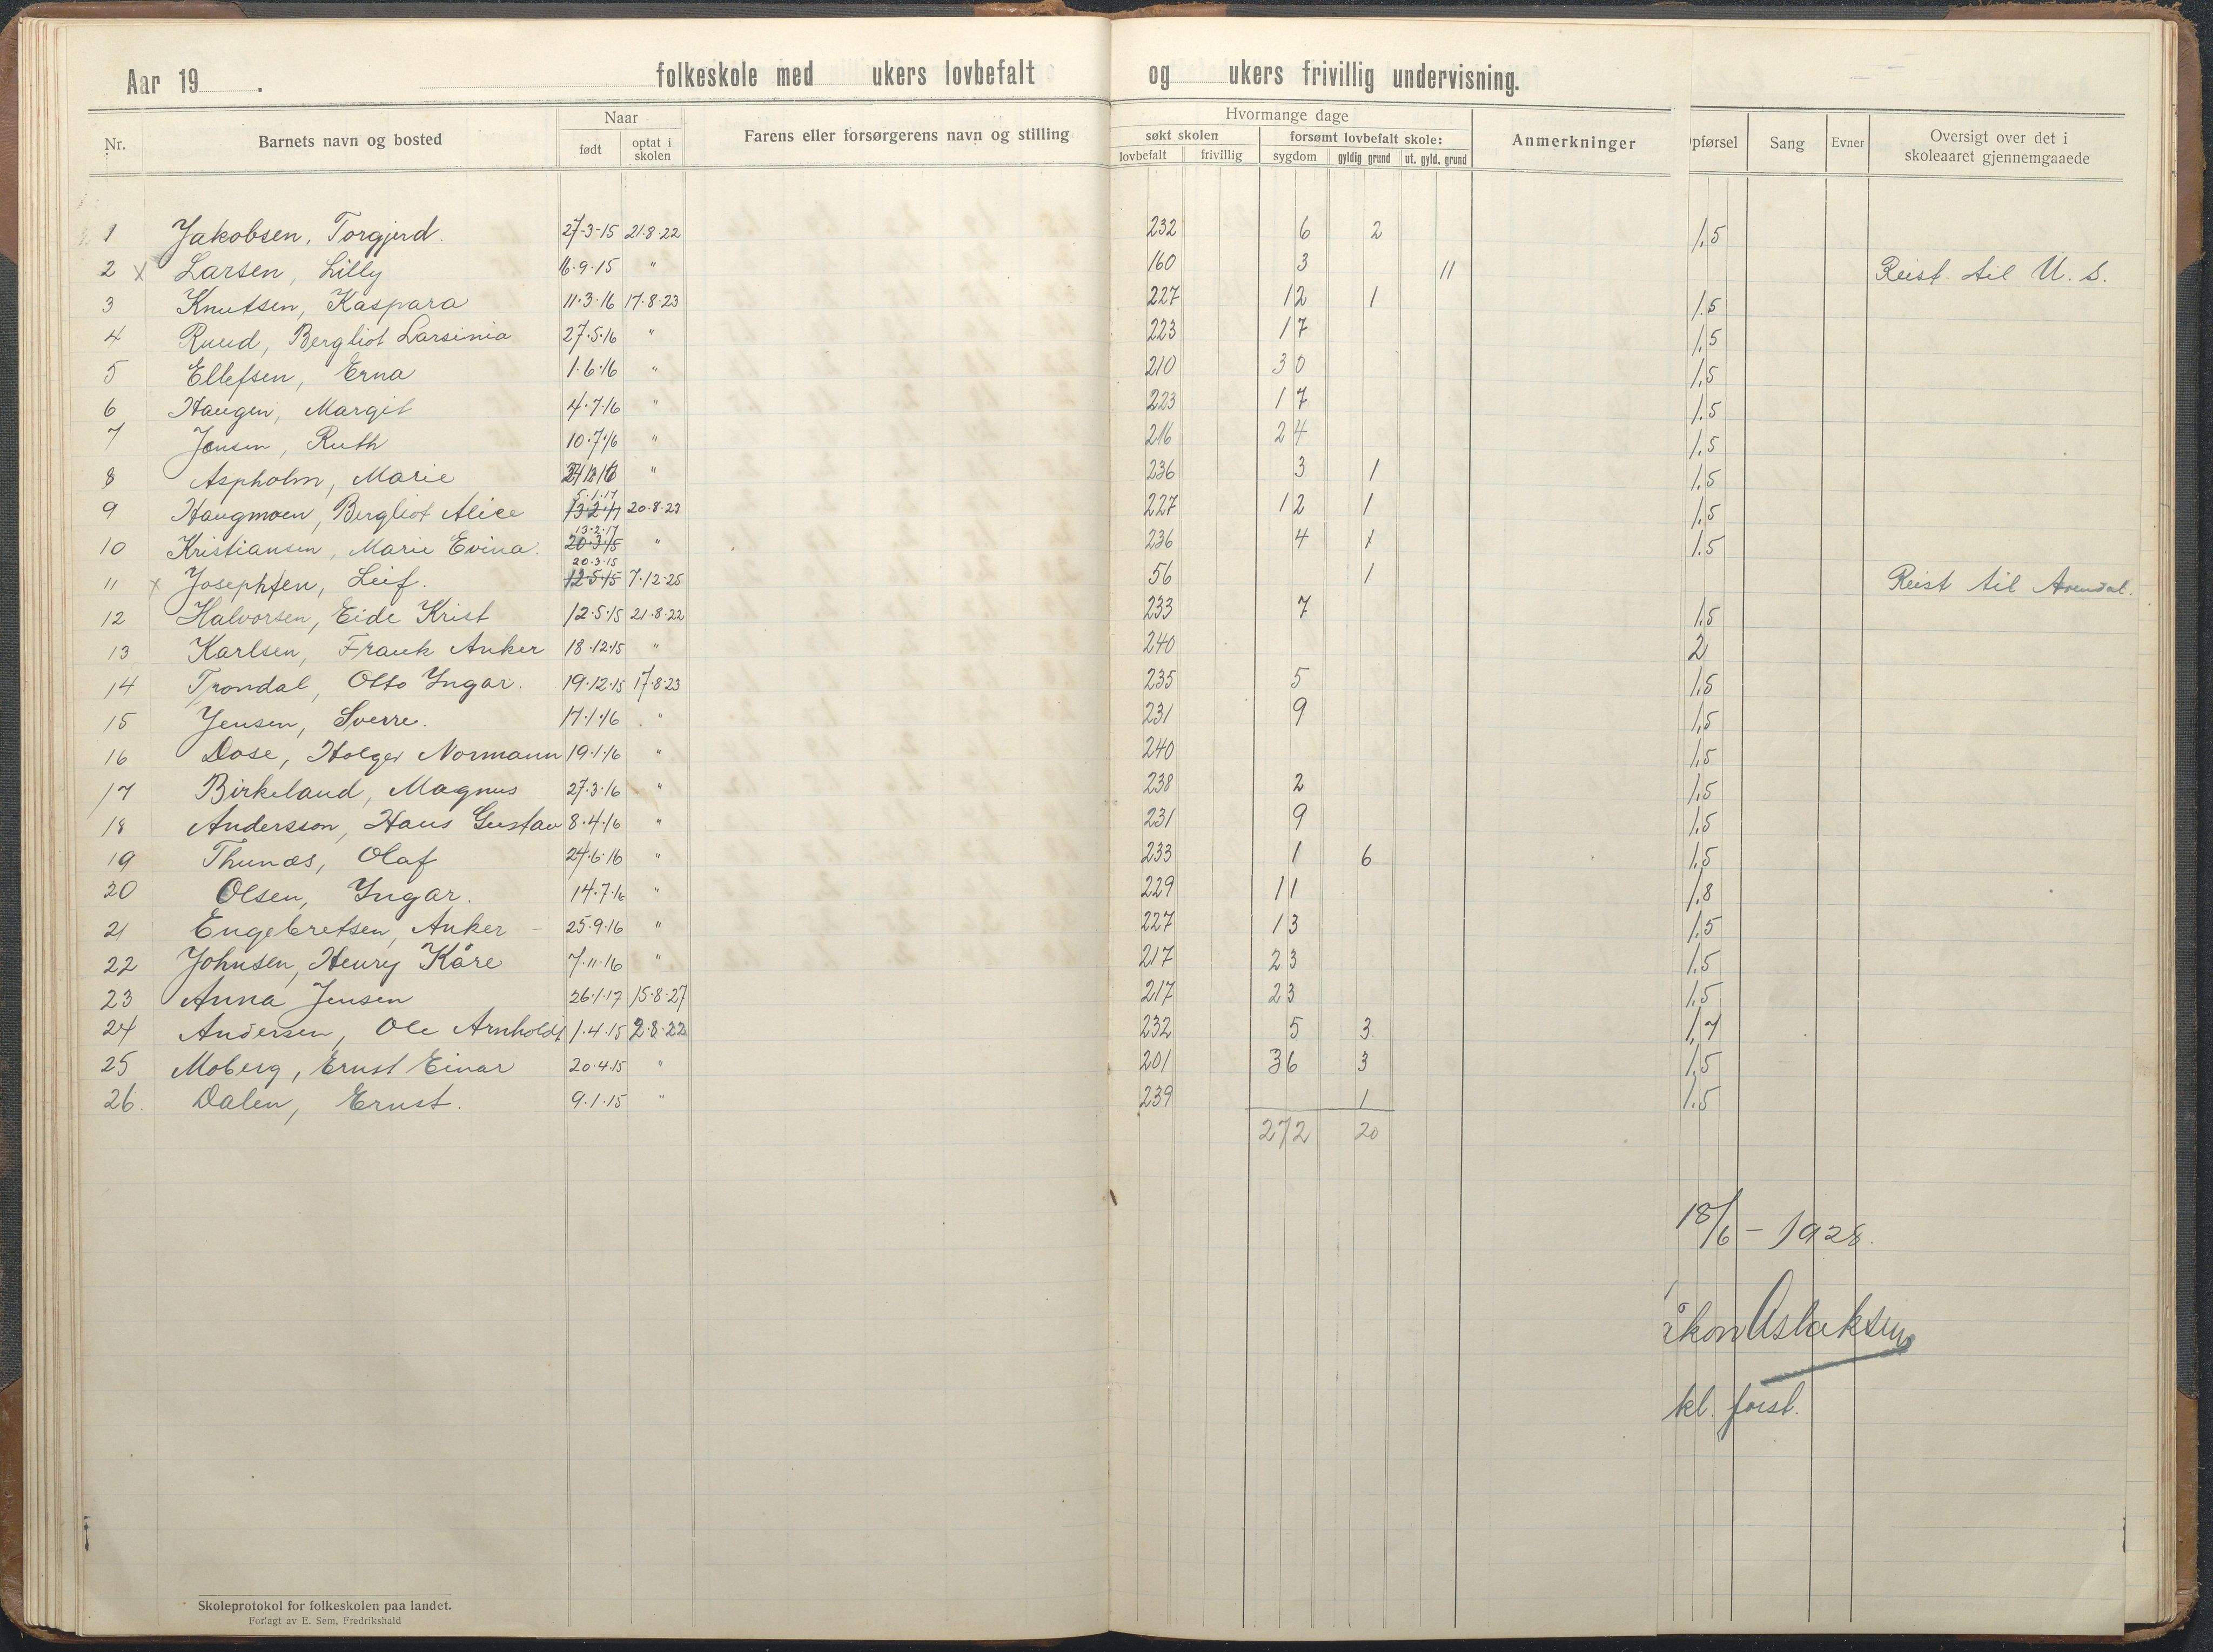 Aar 19 . folkeskole med ukers lovbefalt og ukers frivillig undervisning.
Nr. Barnets navn og bosted Naar født optat i skolen Farens eller forsørgerens navn og stilling Hvormange dage søkt skolen lovbefalt frivillig forsømt lovbefalt skole: sygdom gyldig grund ut. gyld. grund Anmerkninger pførsel Sang Evner Oversigt over det i skoleaaret gjennemgaaede
1 Jakobsen, Torgjerd. 27-3-15 21.8.22 232 6 2 1,5
2 x Larsen, Lilly 16.9.15 " 160 3 11 Reist til U. S.
3 Knutsen, Kaspara 11.3.16 17.8.23 227 12 1 1.5
4 Ruud, Bergliot Larsinia 27.5.16 " 223 17 1,5
5 Ellefsen, Erna 1.6.16 " 210 30 1,5
6 Haugen, Margit 4.7.16 " 223 17 1.5
7 Jensen, Ruth 10.7.16 " 216 24 1.5
8 Aspholm, Marie " 236 3 1 1.5
9 Haugmoen, Bergliot Alice 5.1.17 13.2.17 20.8.23 227 12 1 1.5
10 Kristiansen, Marie Evina. 13.2.17 20.3.15 " 236 4 1 1.5
11 x Josephsen, Leif. 20.3.15 12.5.15 7.12.25 56 1 Reist til Arendal.
12 Halvorsen, Eide Krist 12.5.15 21.8.22 233 7 1.5
13 Karlsen, Frank Anker 18.12.15 " 240 2
14 Trondal, Otto Yngar. 19.12.15 17.8.23 235 5 1,5
15 Jensen, Sverre. 17.1.16 " 231 9 1,5
16 Dose, Holger Normann 19.1.16 " 240 1.5
17 Birkeland, Magnus 27.3.16 " 238 2 1,5
18 Andersson, Hans Gustav 8.4.16 " 231 9 1.5
19 Thunæs, Olaf 24.6.16 " 233 1 6 1.5
20 Olsen, Yngar. 14.7.16 " 229 11 1.8
21 Engebretsen, Anker - 25.9.16 " 227 13 1.5
22 Johnsen, Henry Kåre 7.11.16 " 217 23 1.5
23 Anna Jensen 26.1.17 15.8.27 217 23 1,5
24 Andersen, Ole Arnholdt 1.4.15 2.8.22 232 5 3 1,7
25 Moberg, Ernst Einar 20.4.15 " 201 36 3 1,5
26. Dalen, Ernst. 9.1.15 " 239 1 1.5
272 20
18/6 - 1928.
åkon Aslaksen
kl. forst.
Skoleprotokol for folkeskolen paa landet.
Forlagt av E. Sem, Fredrikshald